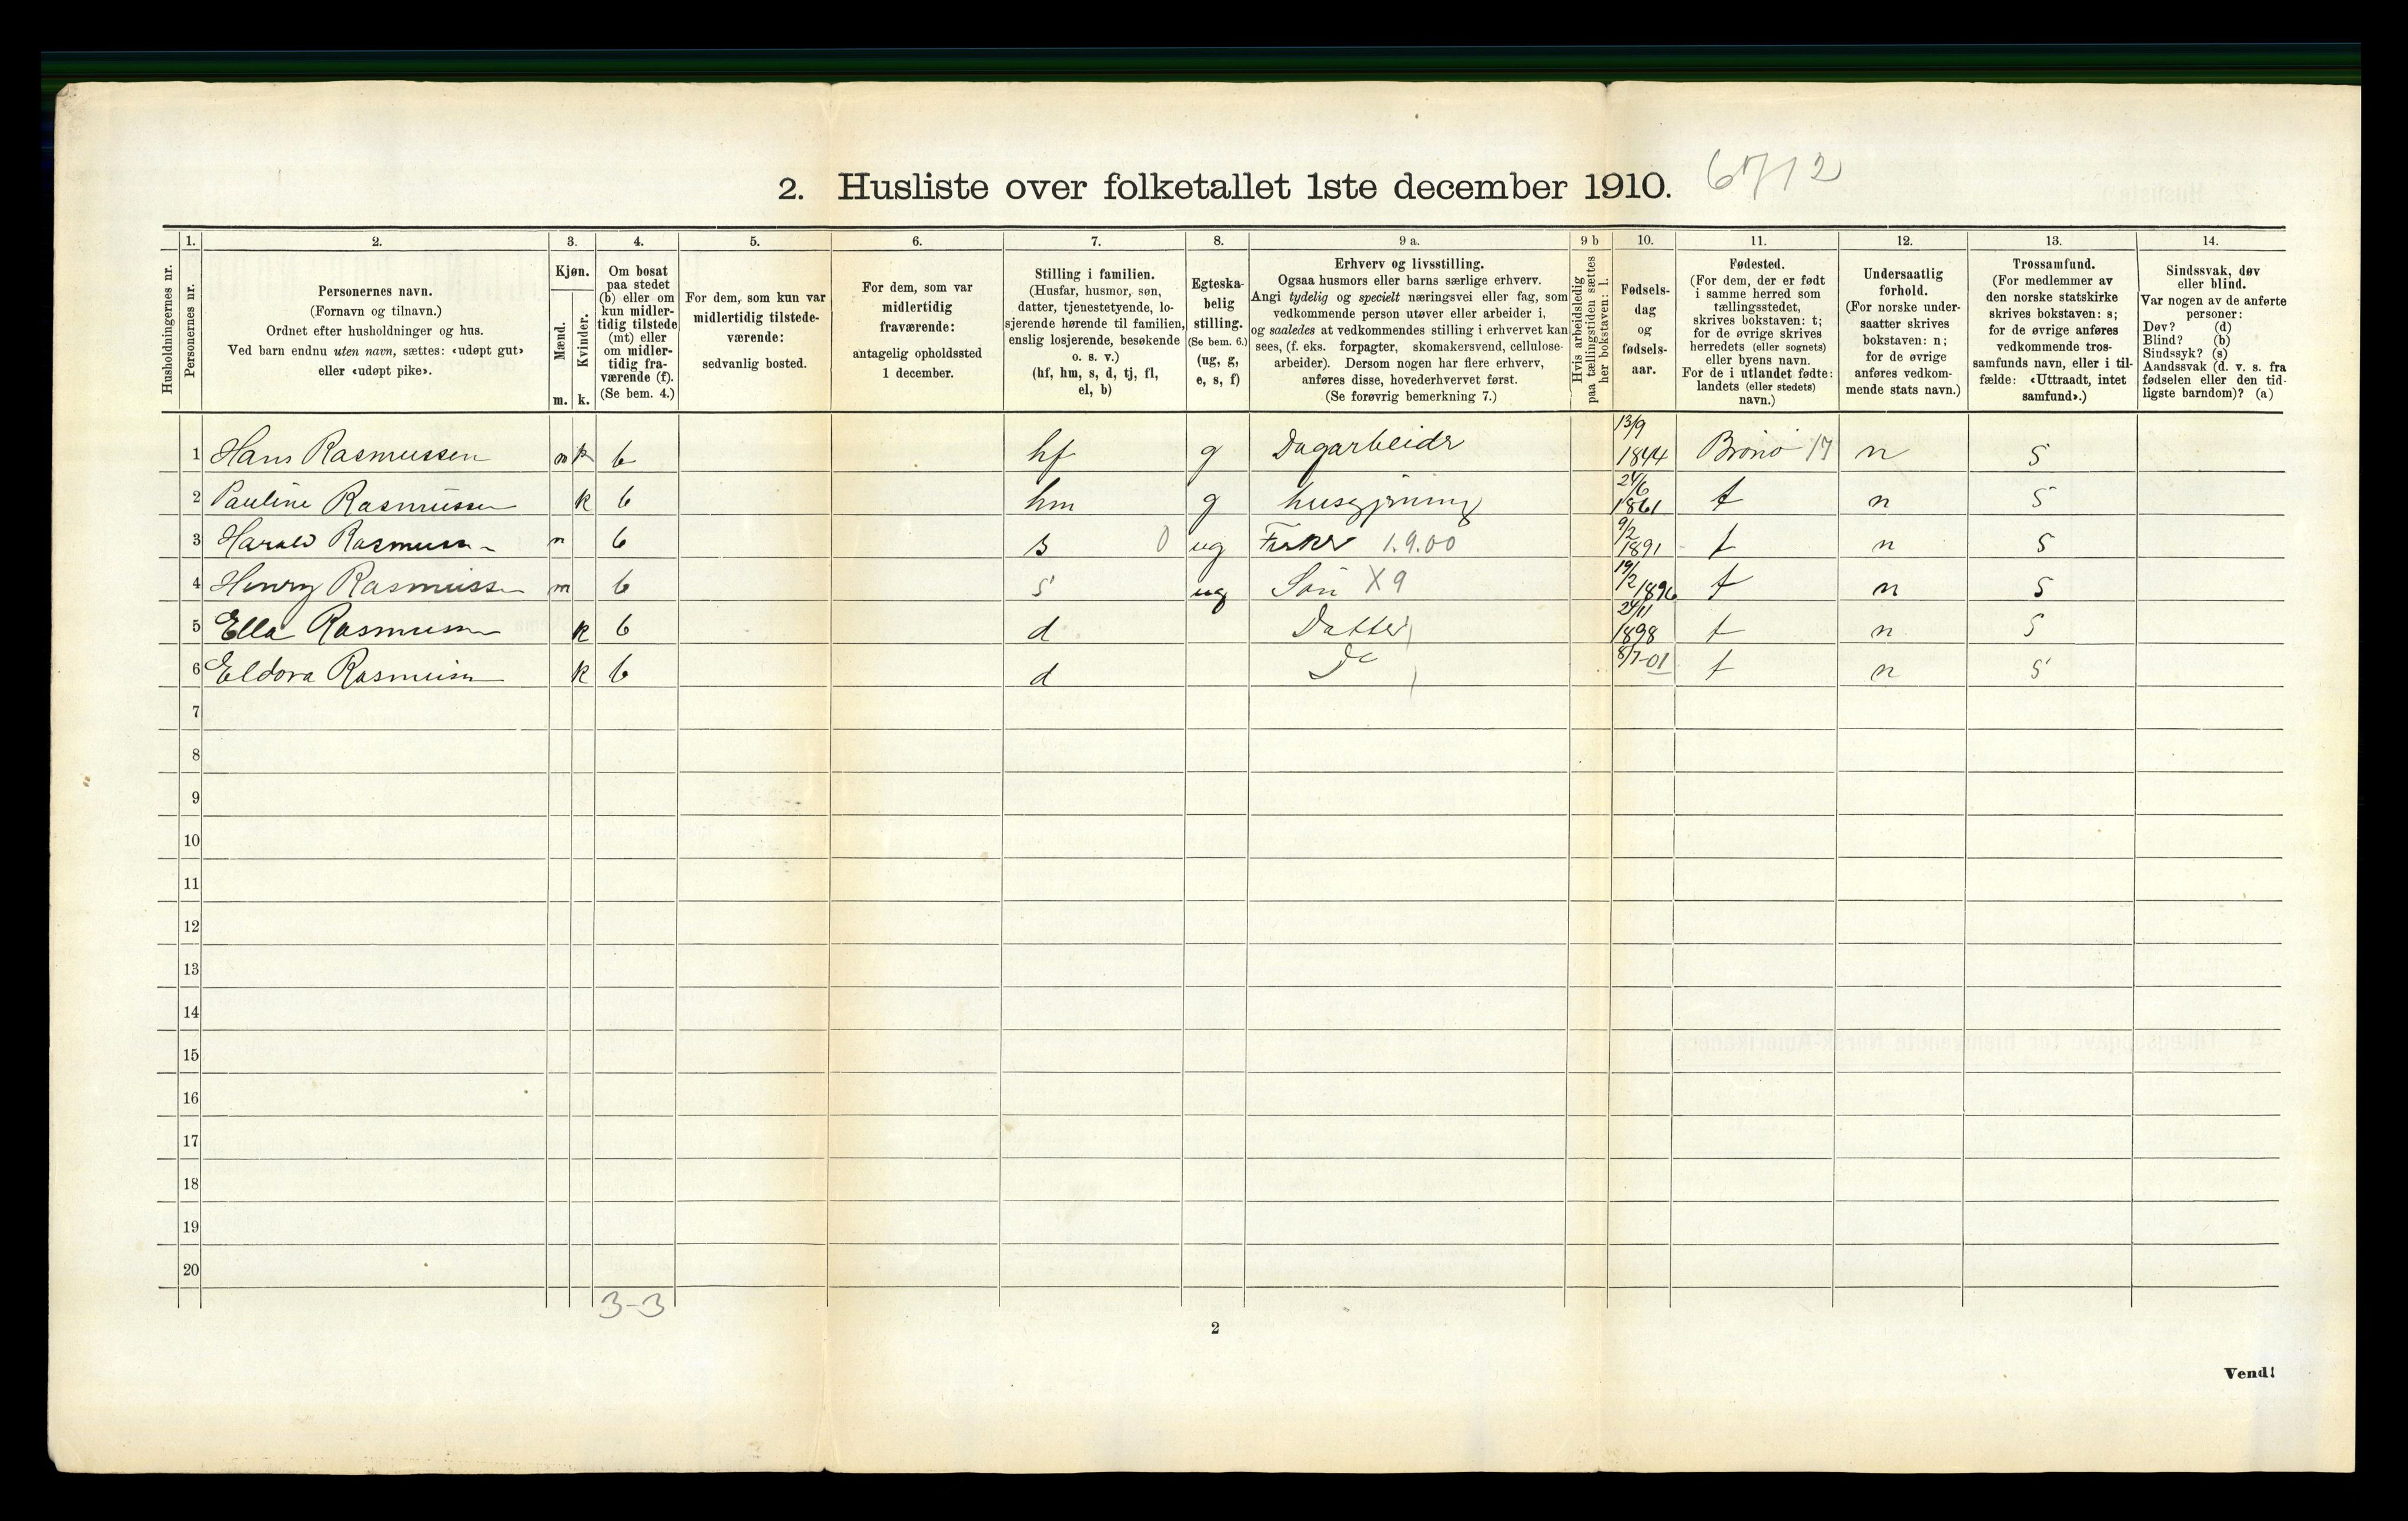 2. Husliste over folketallet 1ste december 1910. 6712
Husholdningernes nr.
1. Personernes nr.
2. Personernes navn.
(Fornavn og tilnavn.)
Ordnet efter husholdninger og hus.
Ved barn endnu uten navn, sættes: «udøpt gut»
eller «udøpt pike».
3. Kjøn.
Mænd. m.
Kvinder. k.
4. Om bosat
paa stedet
(b) eller om
kun midler-
tidig tilstede
(mt) eller
om midler-
tidig fra-
værende (f).
(Se bem. 4.)
5. For dem, som kun var
midlertidig tilstede-
værende:
sedvanlig bosted.
6. For dem, som var
midlertidig
fraværende:
antagelig opholdssted
1 december.
7. Stilling i familien.
(Husfar, husmor, søn,
datter, tjenestetyende, lo-
sjerende hørende til familien,
enslig losjerende, besøkende
o. s. v.)
(hf, hm, s, d, tj, fl,
el, b)
8. Egteska-
belig
stilling.
(Se bem. 6.)
(ug, g,
e, s, f)
9 a. Erhverv og livsstilling.
Ogsaa husmors eller barns særlige erhverv.
Angi tydelig og specielt næringsvei eller fag, som
vedkommende person utøver eller arbeider i,
og saaledes at vedkommendes stilling i erhvervet kan
sees, (f. eks. forpagter, skomakersvend, cellulose-
arbeider). Dersom nogen har flere erhverv,
anføres disse, hovederhvervet først.
(Se forøvrig bemerkning 7.)
9 b Hvis arbeidsledig
paa tællingstiden sættes
her bokstaven: l.
10. Fødsels-
dag
og
fødsels-
aar.
11. Fødested.
(For dem, der er født
i samme herred som
tællingsstedet,
skrives bokstaven: t;
for de øvrige skrives
herredets (eller sognets)
eller byens navn.
For de i utlandet fødte:
landets (eller stedets)
navn.)
12. Undersaatlig
forhold.
(For norske under-
saatter skrives
bokstaven: n;
for de øvrige
anføres vedkom-
mende stats navn.)
13. Trossamfund.
(For medlemmer av
den norske statskirke
skrives bokstaven: s;
for de øvrige anføres
vedkommende tros-
samfunds navn, eller i til-
fælde: «Uttraadt, intet
samfund».)
14. Sindssvak, døv
eller blind.
Var nogen av de anførte
personer:
Døv? (d)
Blind? (b)
Sindssyk? (s)
Aandssvak (d. v. s. fra
fødselen eller den tid-
ligste barndom)? (a)
1 Hans Rasmussen m k b hf g Dagarbeidr 13/9 1844 Brönö 17 n s
2 Pauline Rasmussen k b hm g husgjrning 24/6 1861 t n s
3 Harald Rasmussen m b s 0 ug Fisker 1.9.00 9/2 1891 t n s
4 Henry Rasmussen m b s ug Sön X9 19/2 1896 t n s
5 Ella Rasmussen k b d Datter 24/11 1898 t n s
6 Eldora Rasmussen k b d Do 8/7-01 t n s
7
8
9
10
11
12
13
14
15
16
17
18
19
20
3-3
2
Vend!